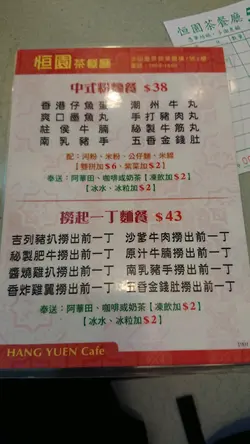 恒園茶餐廳
中式粉麵餐 $38
香港仔魚蛋 潮州牛丸
爽口墨魚丸 手打豬肉丸
柱侯牛腩 秘製牛筋丸
南乳豬手 五香金錢肚
配:河粉、米粉、公仔麵、米線
【雙拼加$6、紫菜加$2】
奉送:阿華田、咖啡或奶茶【凍飲加$2】
【冰水、冰粒加$2】
撈起一丁麵餐 $43
吉列豬扒撈出前一丁 沙爹牛肉撈出前一丁
秘製肥牛撈出前一丁 原汁牛腩撈出前一丁
醬燒雞扒撈出前一丁 南乳豬手撈出前一丁
香炸雞翼撈出前一丁 五香金錢肚撈出前一丁
奉送:阿華田、咖啡或奶茶【凍飲加$2】
【冰水、冰粒加$2】
HANG YUEN Cafe
恒園茶餐廳